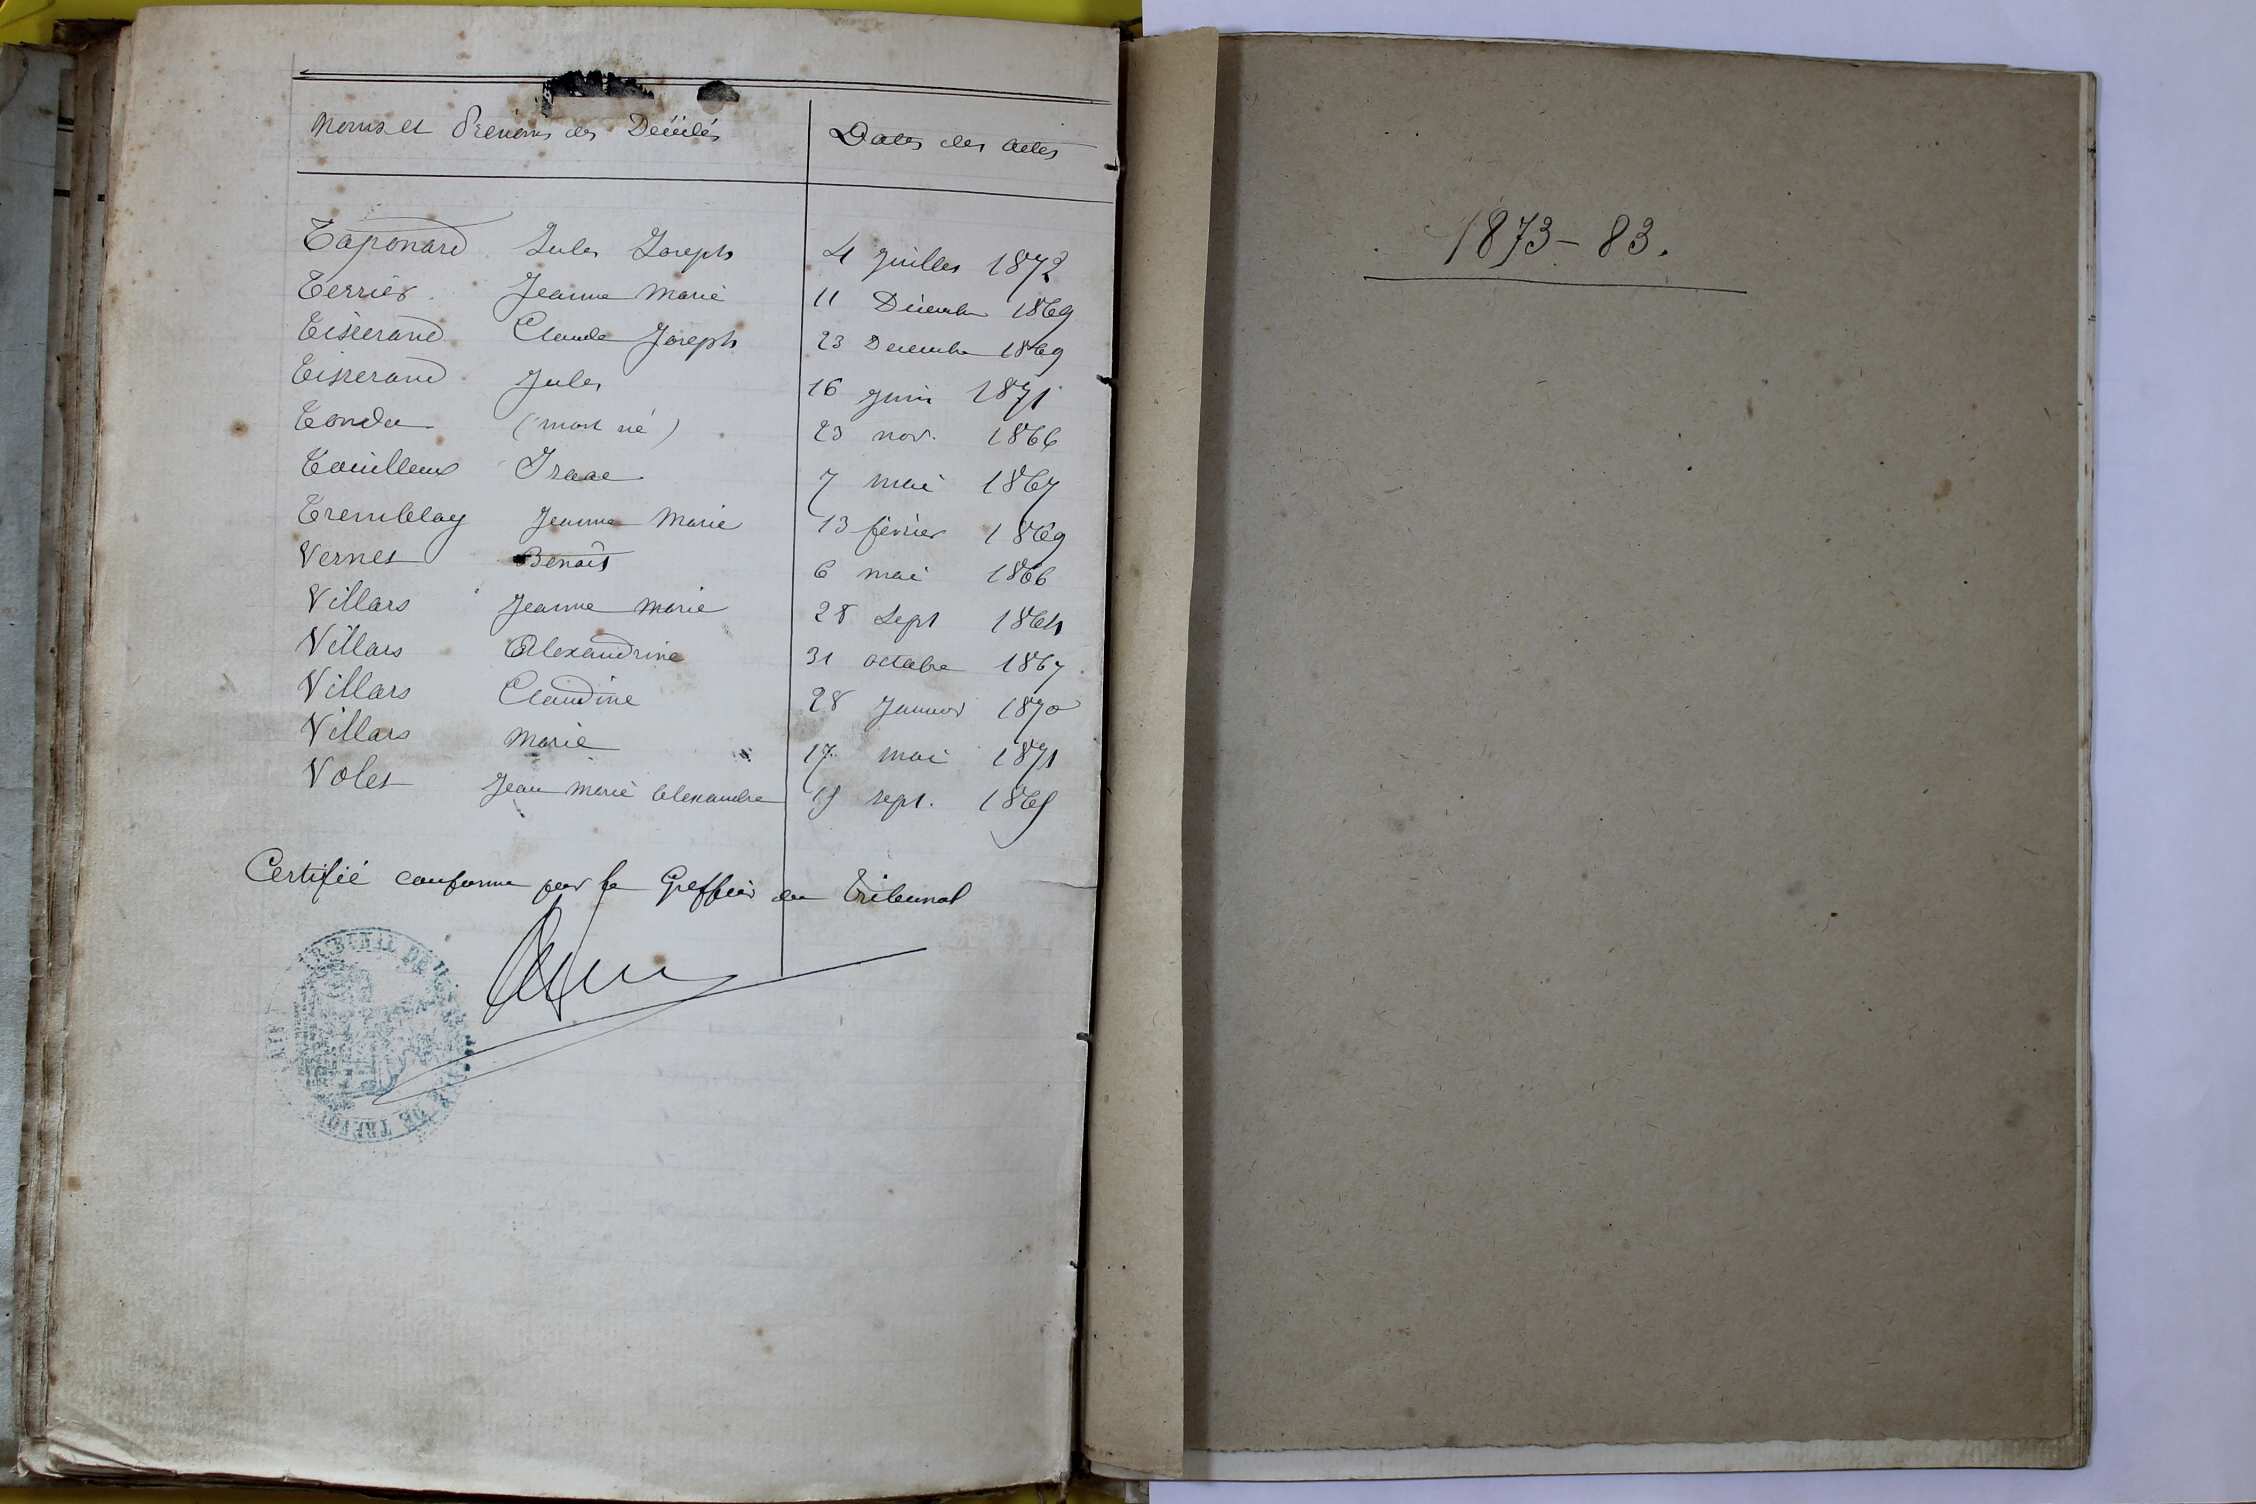 Noms et Prénoms des Décédés Dates des actes
Taponard Jules Joseph 4 Juillet 1872
Terrier Jeanne Marie 11 Décembre 1869
Tisserand Claude Joseph 23 Decembre 1869
Tisserand Jules 16 Juin 1871
Tondu (mort né) 23 nov. 1866
Touilleux Isaac 7 mai 1867
Tremblay Jeanne Marie 13 février 1869
Vernet Benoît 6 mai 1866
Villars Jeanne Marie 28 Sept 1864
Villars Alexandrine 31 octobre 1867
Villars Claudine 28 Janvier 1870
Villars Marie 17 mai 1871
Volet Jean Marie Alexandre sept.
Certifié conforme par le Greffier du Tribunal
TRIBUNAL DE
DE TREVOUX
AIN
1873-83.